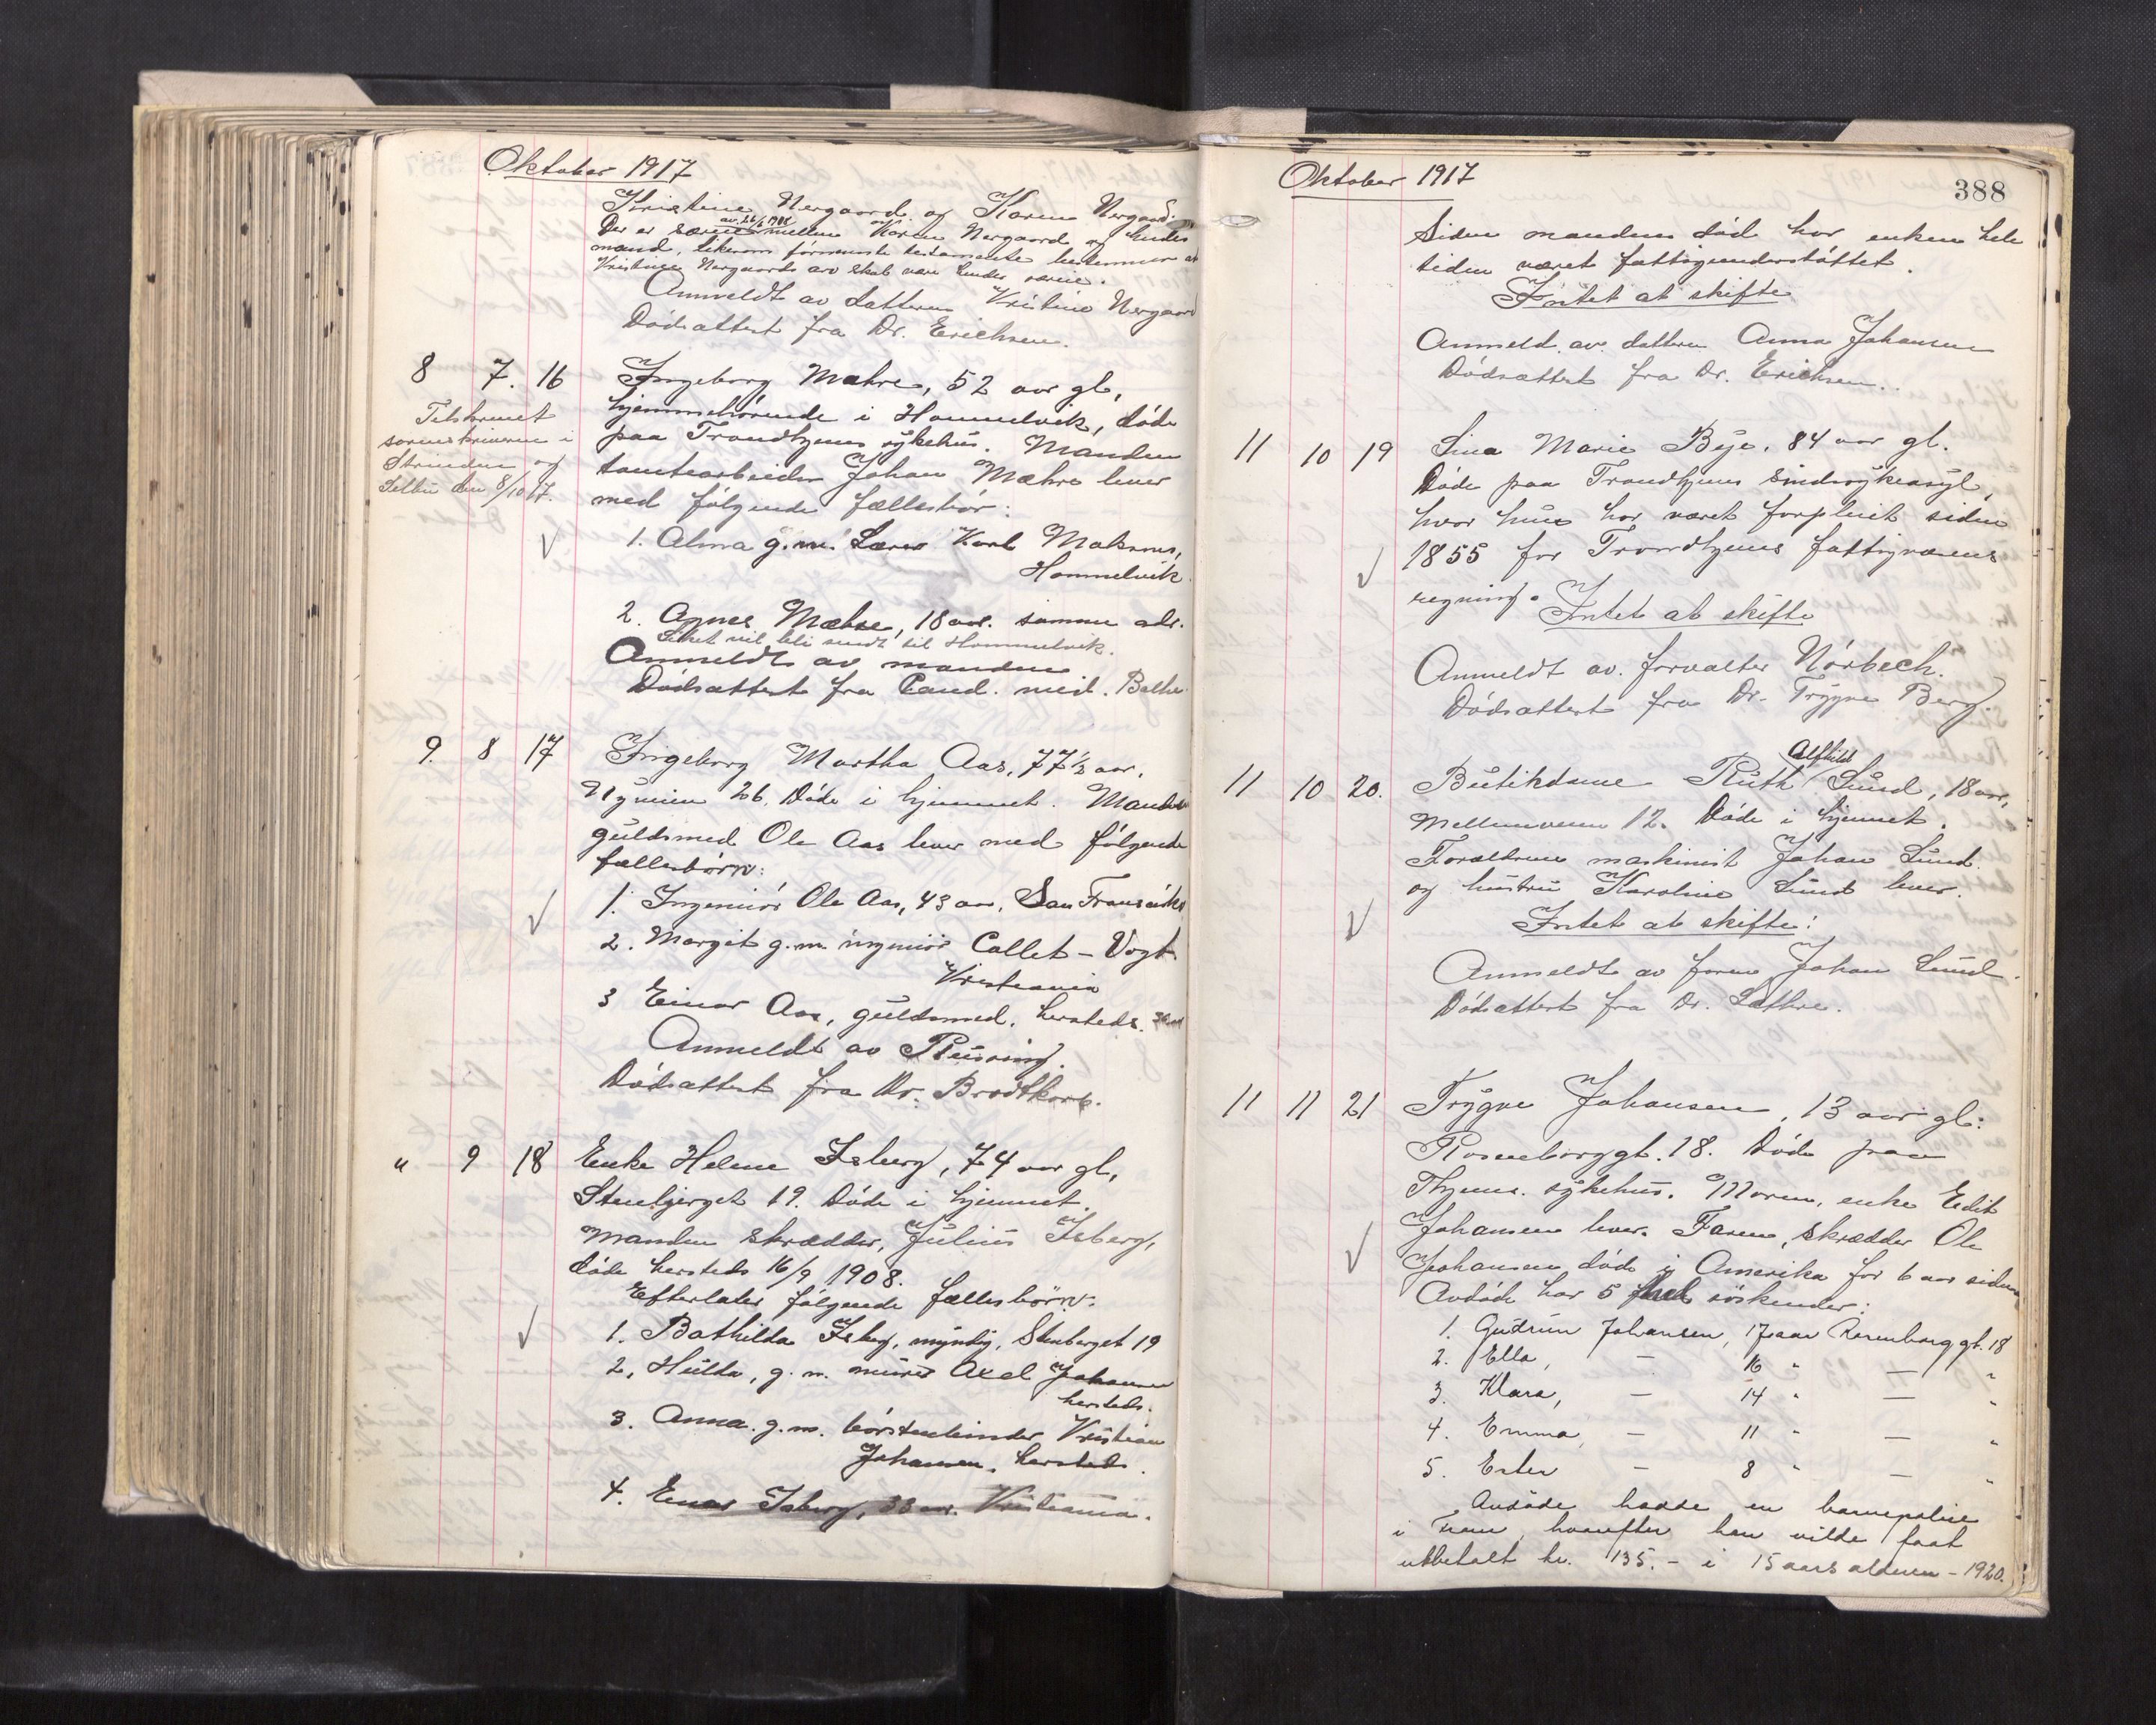 Oktober 1917
Kristine Nergaard og Karen Nergaard.
av 26/6 1915
Der er særeie mellem Karen Nergaard og hendes
mand, likesom testamente bestemmer at
Kristine Nergaards arv skal være hendes særeie.
Anmeldt av datteren Kristine Nergaard
Dødsattest fra Dr. Erichsen.
8 7. 16 Ingeborg Mæhre, 52 aar gl,
hjemmehørende i Hommelvik, døde
paa Trondhjems sykehus. Manden
tomtearbeider Johan Mæhre lever
med følgende fællesbør:
Tilskrevet
sorenskriveren i
Strinden og
Selbu den 8/10 17.
1. Alma g.m. Lærer Karl
Hommelvik.
2. Agnes Mæhre, 18 aar. samme adr.
Liket vil bli sendt til Hommelvik.
Anmeldt av manden
Dødsattest fra Cand. med.
9. 8 17 Ingeborg Martha Aas, 77 1/2 aar,
Nyveien 26. Døde i hjemmet. Manden
guldsmed Ole Aas lever med følgende
fællesbørn:
1. Ingeniør Ole Aas, 43 aar, San Fransisko
2. Margit g.m. ingeniør Collet-Vogt
Kristiania
3 Einar Aas, guldsmed, hersteds.
Anmeldt av Reusing.
Dødsattest fra Dr. Brodtkorb.
" 9 18 Enke Helene Isberg, 74 aar gl,
Stenbjerget 19. Døde i hjemmet.
Manden skrædder, Julius Isberg,
døde hersteds 16/9 1908.
Efterlater følgende fællesbørn:
1. Bathilda Isberg, myndig, Stenberget 19
2. Hulda, g.m. murer Axel Johansen
hersteds.
3. Anna. g.m. børstenbinder Kristian
Johansen, hersteds.
4. Einar Isberg, 33 aar. Kristiania.
Oktober 1917
388
Siden mandens død har enken hele
tiden været fattigunderstøttet.
Intet at skifte
Anmeld. av. datteren Anna Johansen
Dødsattest fra Dr. Erichsen..
11 10 19 Lina Marie Bye, 84 aar gl.
Døde paa Trondhjems Sindssykeasyl,
hvor hun har været forpleiet siden
1855 for Trondhjems fattigvæsens
regning. Intet at skifte
Anmeldt av. forvalter Nørbech.
Dødsattest fra Dr. Trygve Berg.
Alfhild
11 10 20. Butikdame Ruth Lund, 18 aar,
Mellemveien 12. Døde i hjemmet.
Forældrene maskinist Johan Lund
og hustru Karoline Lund lever.
Intet at skifte!
Anmeldt av faren Johan Lund.
Dødsattest fra Dr.
11 11 21 Trygve Johansen, 13 aar gl:
Rosenborggt. 18. Døde paa
Thjems. sykehus. Moren, enke Edit
Johansen lever. Faren, skrædder Ole
Johansen, døde i Amerika for 6 aar siden
Avdøde har 5 søskender:
1. Gudrun Johansen, 17 aar Rosenborggt. 18
2. Ella, — 16 " — "
3. Klara, — 14 " — "
4. Emma, — 11 " — "
5. Ester — 8 " — "
Avdøde hadde en barnepolice
i Fram, hvorefter han vilde faat
utbetalt kr. 135.- i 15 aars alderen - 1920.